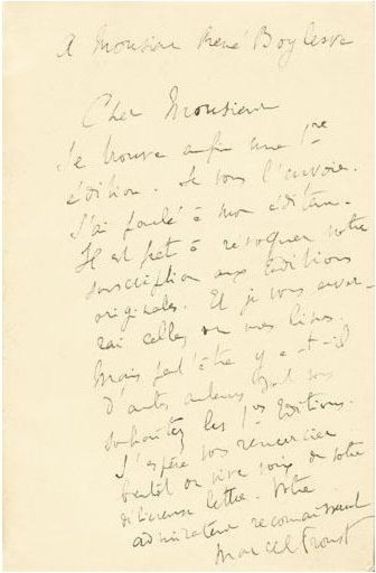 A Monsieur René Boylesve
Cher Monsieur
Je trouve enfin une 1re
édition. Je vous l'envoie.
J'ai parlé à mon éditeur.
Il est prêt à révoquer votre
souscription aux Editions
originales. Et je vous enver-
rai celles de mes livres.
Mais peut'être y a-t-il
d'autres auteurs dont vous
souhaitez les 1res Editions.
J'espère vous remercier
bientôt de vive voix de votre
délicieuse lettre. Votre
admirateur reconnaissant
Marcel Proust